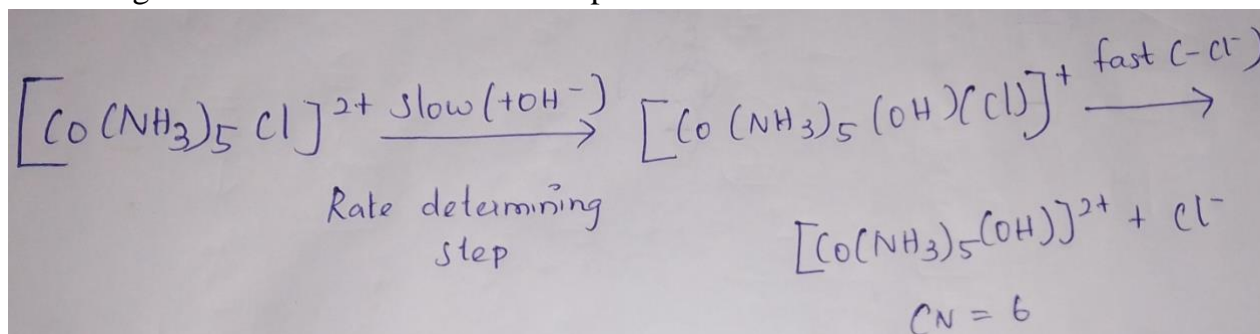 [Co(NH3)5Cl]2+ slow(+OH-) → [Co(NH3)5(OH)(Cl)]+ fast (-Cl-) →
Rate determining
step
[Co(NH3)5(OH)]2+ + Cl-
CN = 6